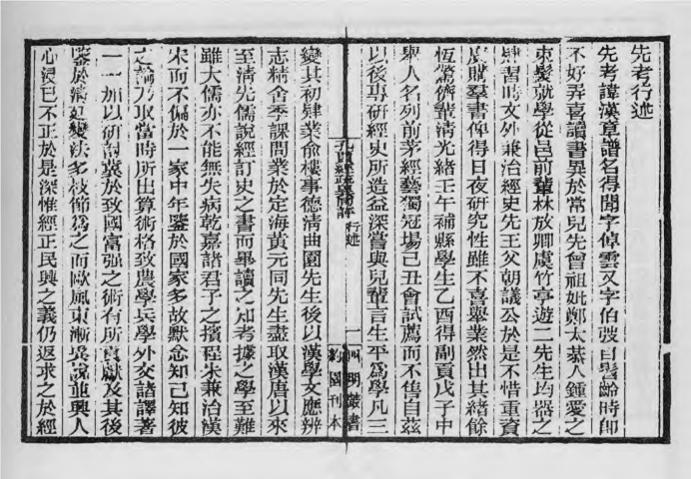 先考行述
先考諱漢章譜名得聞字倬雲又字伯弢自髫齡時卽
不好弄喜讀書異於常兒先曾祖妣鄭太恭人鍾愛之
束髮就學從邑前輩林放卿虞竹亭遊二先生均器之
肄習時文外兼治經史先王父朝議公於是不惜重資
廣購羣書俾得日夜研究性雖不喜舉業然出其緒餘
恆驚儕輩淸光緒壬午補縣學生乙酉得副貢戊子中
舉人名列前茅經藝獨冠場己丑會試薦而不售自茲
以後專研經史所造益深嘗與兒輩言生平爲學凡三
孔賈經疏異同評 行述 一
四明叢書
約園刊本
變其初肄業俞樓事德淸曲園先生後以漢學文應辨
志精舍季課問業於定海黃元同先生盡取漢唐以來
至淸先儒說經訂史之書而畢讀之知考據之學至難
雖大儒亦不能無失病乾嘉諸君子之擯程朱兼治漢
宋而不偏於一家中年鑒於國家多故默念知己知彼
之論乃取當時所出算術格致農學兵學外交諸譯著
一一加以研討冀於致國富强之術有所貢獻及其後
鑒於淸廷變法多枝節爲之而歐風東漸異說並興人
心浸已不正於是深惟經正民興之義仍返求之於經